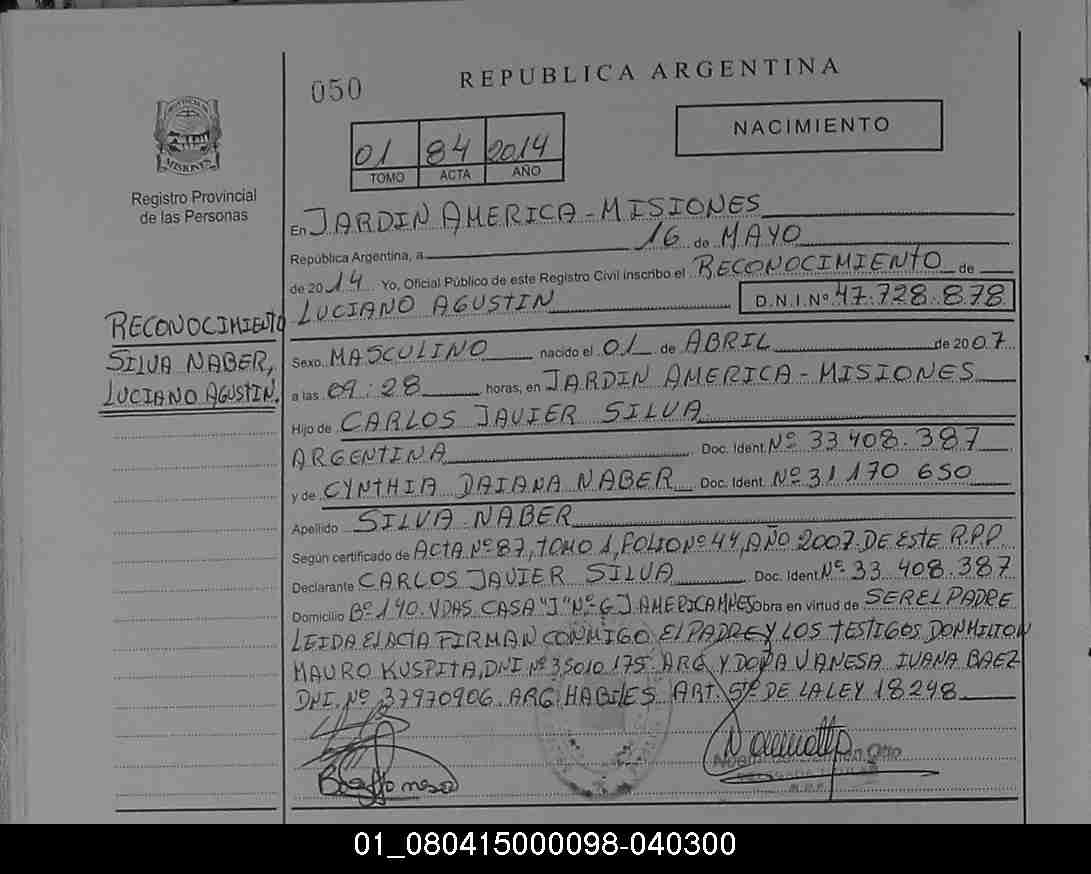 050
REPUBLICA ARGENTINA
01 84 2014
TOMO ACTA AÑO
NACIMIENTO
MISIONES
Registro Provincial
de las Personas
RECONOCIMIENTO
SILVA NABER,
LUCIANO AGUSTIN.
En JARDIN AMERICA - MISIONES
República Argentina, a 16 de MAYO
de 2014 Yo, Oficial Público de este Registro Civil inscribo el RECONOCIMIENTO de
LUCIANO AGUSTIN D.N.I.Nº 47.728.878
Sexo MASCULINO nacido el 01 de ABRIL de 2007
a las 09:28 horas, en JARDIN AMERICA - MISIONES
Hijo de CARLOS JAVIER SILVA
ARGENTINA Doc. Ident. Nº 33 408.387
y de CYNTHIA DAIANA NABER Doc. Ident. Nº 31 170 650
Apellido SILVA NABER
Según certificado de ACTA Nº 87, TOMO 1, FOLIO Nº 44, AÑO 2007 DE ESTE R.P.P
Declarante CARLOS JAVIER SILVA Doc. Ident. Nº 33 408.387
Domicilio Bº 140 VDAS. CASA "J" Nº 6 J AMERICA MNES Obra en virtud de SER EL PADRE
LEIDA EL ACTA FIRMAN CONMIGO EL PADRE Y LOS TESTIGOS DON MILTON
MAURO KUSPITA, DNI Nº 35010 175. ARG Y DORA VANESA IVANA BAEZ
DNI. Nº 37970906. ARG. HABILES ART. 5º DE LA LEY 18248
01_080415000098-040300